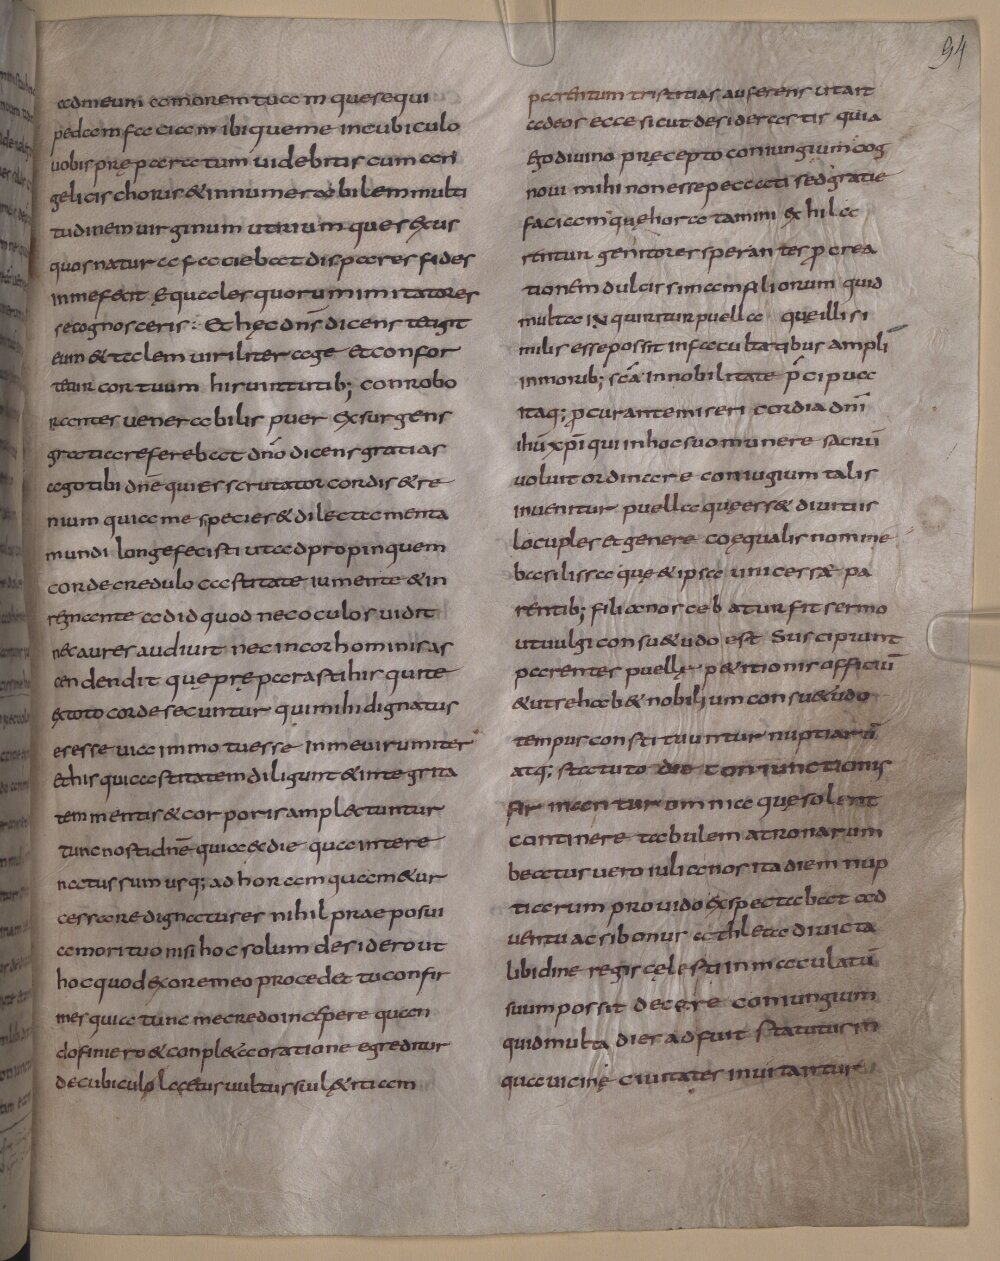 94
ad meum amorem tuam que sequi
pedam faciam ibi queme in cubiculo
uobis prę paratum uidebitis cum an
gelicis choris & innumerabilem multi
tudinem uirginum utrium que sexus
quos natura faciebat dispares fides
in me fecit equales quorum imitatores
se cognosceris. Et hęc dn̄s dicens tetigit
eum & talem uiriliter age et confor
tetur cor tuum his uirtutib; conrobo
rantes uenerabilis puer exsurgens
gratia referebat dn̄o dicens gratias
ago tibi dn̄e qui es scrutator cordis & re
nium quia me species & dilecta menta
mundi longe fecisti ut ad propinquem
corde credulo castitate iumente & in
regnante ad id quod nec oculos uidit
nec aures audiuit nec in cor hominis as
cendendit quę prę parasti his qui te
ex toto corde secuntur qui mihi dignatus
es esse uia immo tu esse in me uirum iter
Et his qui castitatem diligunt & integrita
tem mentis & corporis amplectuntur
tu nosti dn̄e quia ex die qua intere
natus sum usq; ad horam quam & ur
cessare dignatus es nihil prae posui
amori tuo nisi hoc solum desidero ut
hoc quod ex ore meo procedet tu confir
mes quia tunc me credo incipere quan
do finiero & conpleta oratione egreditur
de cubiculo laetus uultus siul & etiam
parentum tristitias auferens uitait
ad eos ecce sicut desiderastis quia
Ego diuino pręcepto coniungium cog
noui mihi non esse peccati sed gratie
faciam quę hortatamini ex hila
rentur genitores sperantes p̱ crea
tionem dulcissimam filiorum quid
multa inquiritur puella que illi si
milis esse possit in facultatibus ampli
in morib; sc̄a in nobilitate p̄cipua
itaq; p̱curante misericordia dn̄i
ih̄u xp̄i qui in hoc suo munere sacrū
uoluit ordinare coniugium talis
inuenitur puella quę esset diuitiis
locuples et genere coęqualis nomine
basilissa quę & ipsa unica esset pa
rentib; filia noscebatur fit sermo
ut uulgi consuetudo est Suscipiunt
parentes puellę petitionis officiū
& ut se habet nobilium consuetudo
tempus constituuntur nuptiarū
atq; statuto die coniunctionis
omnia que solent
continere tabulem atronarum
beatus uero iulianos ita diem nup
tiarum prouido exspectabat ad
uentu ac si bonus athleta diuicta
libidine regis cęlesti inmaculatū
suum possit decere coniungium
quid multa dies adfuit statutus in
qua uicinę ciuitates inuitantur